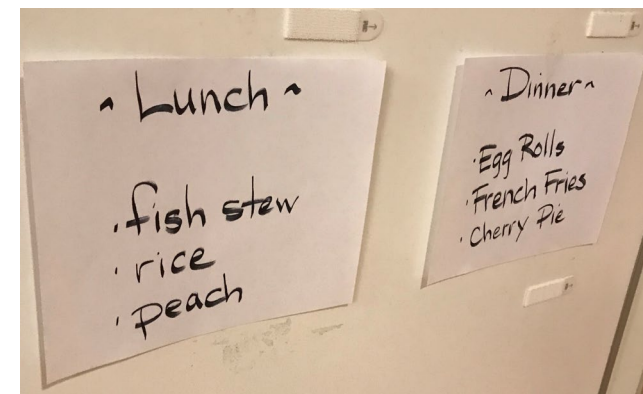 ~ Lunch ~
· fish stew
· rice
· peach
~ Dinner ~
· Egg Rolls
· French Fries
· Cherry Pie